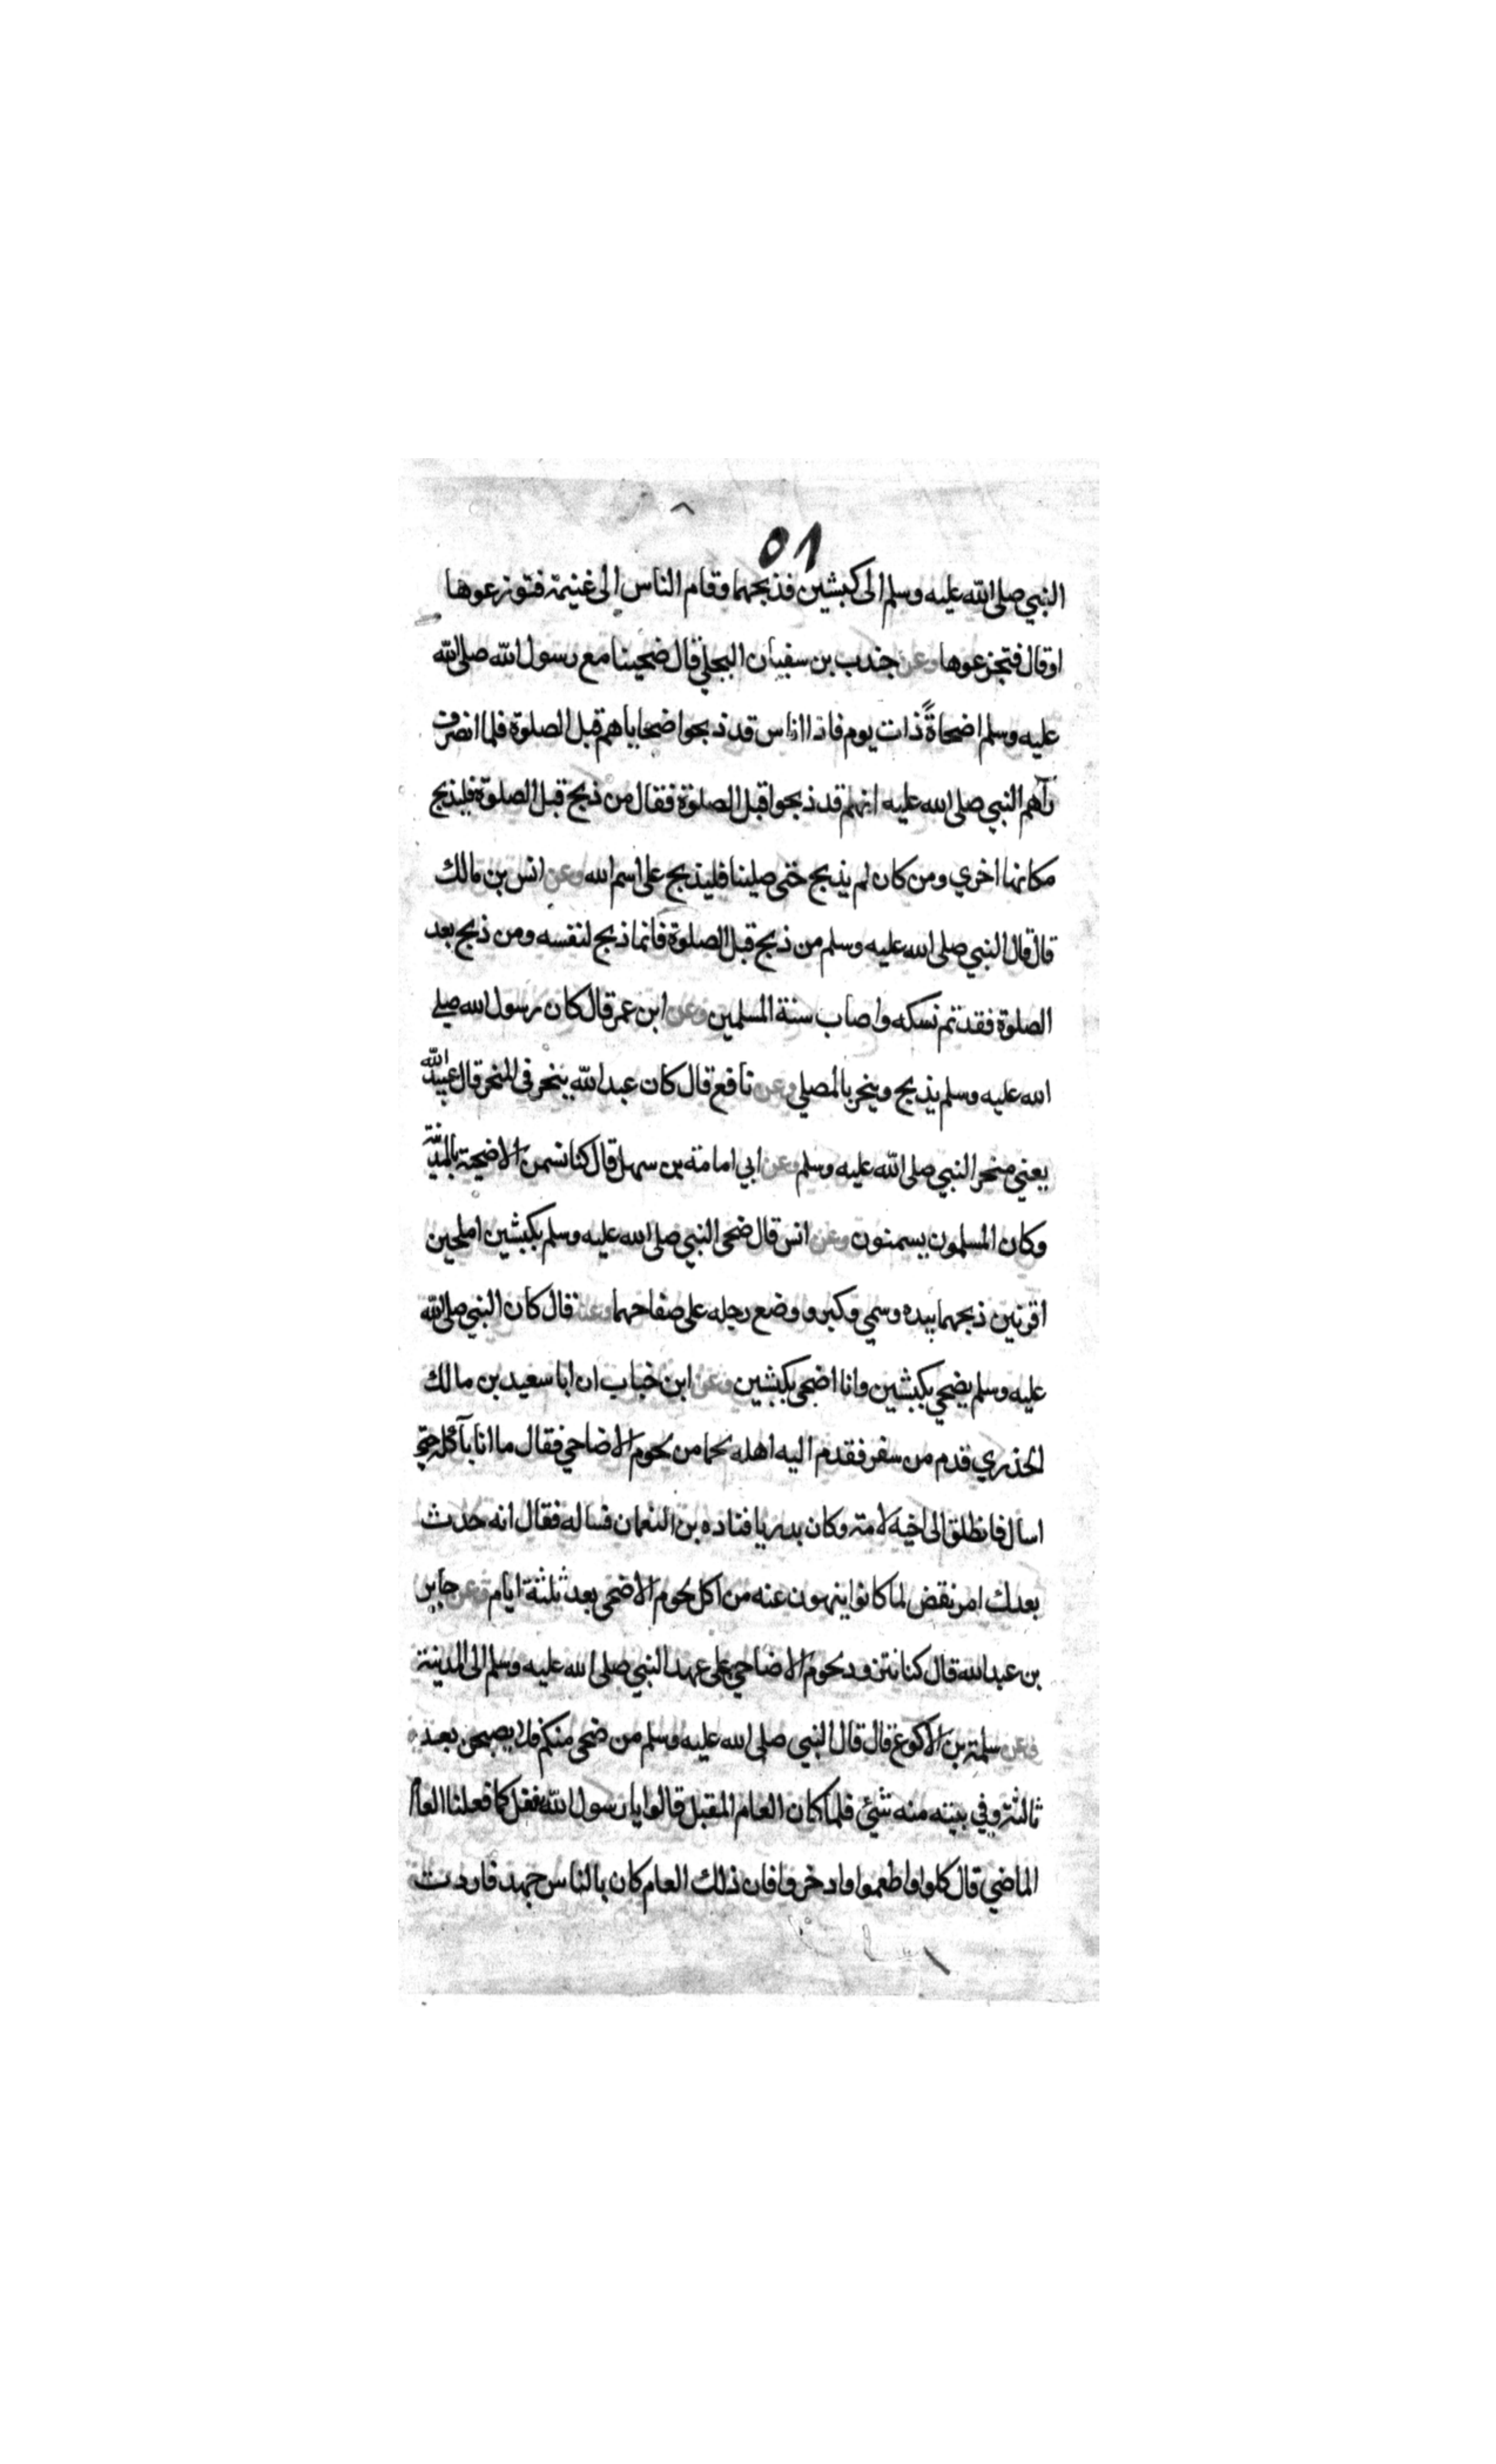 ٥١
النبي صلى الله عليه وسلم الى كبشين فذبحهما وقام الناس الى غنيمة فتوزعوها
او قال فتجزعوها وعن جندب بن سفيان البجلي قال ضحينا مع رسول الله صلى الله
عليه وسلم اضحاةً ذات يوم فاذا اناس قد ذبحوا ضحاياهم قبل الصلوة فلما انصرف
رآهم النبي صلى الله عليه انهم قد ذبحوا قبل الصلوة فقال من ذبح قبل الصلوة فليذبح
مكانها اخري ومن كان لم يذبح حتى صلينا فليذبح على اسم الله وعن انس بن مالك
قال قال النبي صلى الله عليه وسلم من ذبح قبل الصلوة فانما ذبح لنفسه ومن ذبح بعد
الصلوة فقد تم نسكه واصاب سنة المسلمين وعن ابن عمر قال كان رسول الله صلى
الله عليه وسلم يذبح وينحر بالمصلي وعن نافع قال كان عبد الله ينحر في المنحر قال عبيد الله
يعني منحر النبي صلى الله عليه وسلم وعن ابي امامة بن سهل قال كنا نسمن الاضحية بالمدينة
وكان المسلمون يسمنون وعن انس قال ضحى النبي صلى الله عليه وسلم بكبشين املحين
اقرنين ذبحهما بيده وسمي وكبر و وضع رجله على صفاحهما وعنه قال كان النبي صلى الله
عليه وسلم يضحي بكبشين وانا اضحى بكبشين وعن ابن خباب ان ابا سعيد بن مالك
الخذري قدم من سفر فقدم اليه اهله لحما من لحوم الاضاحي فقال ما انا بآكله حتى
اسال فانطلق الى اخيه لامه وكان بدريا قتاده بن النعمان فساله فقال انه حدث
بعدك امر نقض لما كانوا ينهون عنه من اكل لحوم الاضحى بعد ثلثة ايام وعن جابر
بن عبد الله قال كنا نتزود لحوم الاضاحي على عهد النبي صلى الله عليه وسلم الى المدينة
وعن سلمة بن الاكوع قال قال النبي صلى الله عليه وسلم من ضحى منكم فلا يصبحن بعد
ثالثة وفي بيته منه شئ فلما كان العام المقبل قالوا يا رسول الله نفعل كما فعلنا العام
الماضي قال كلوا واطعموا وادخروا فان ذلك العام كان بالناس جهد فاردت